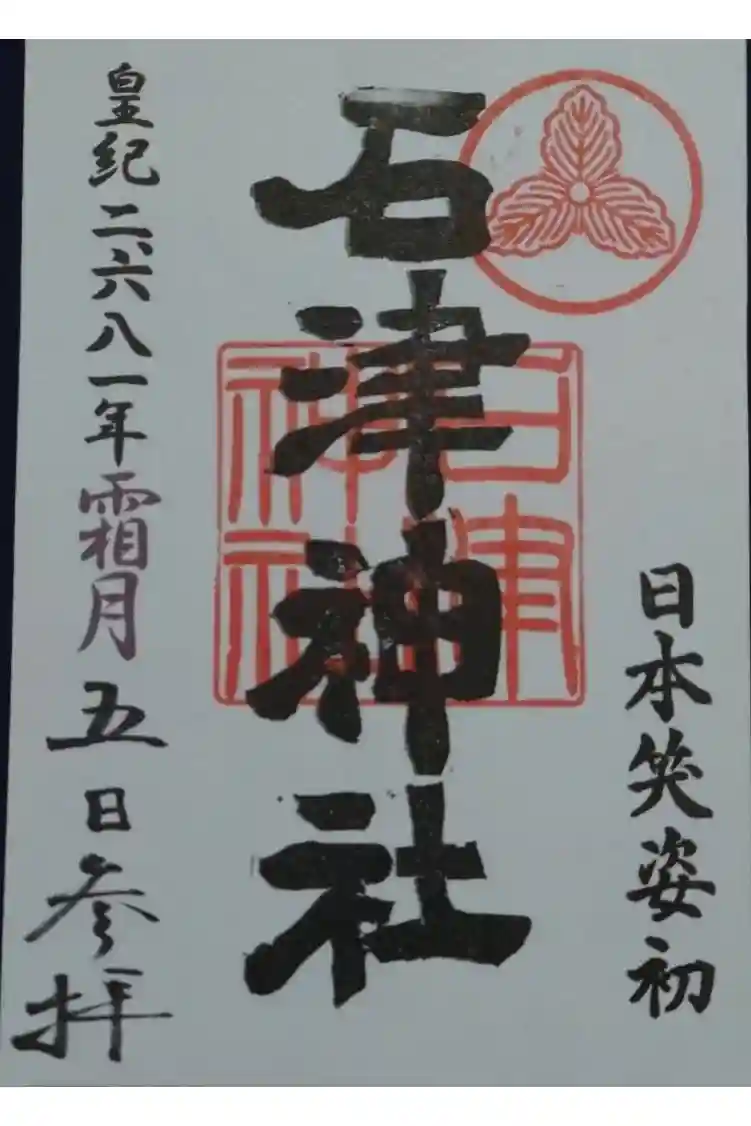 日本笑姿初
石津神社
石津神社
皇紀二六八一年霜月五日参拝